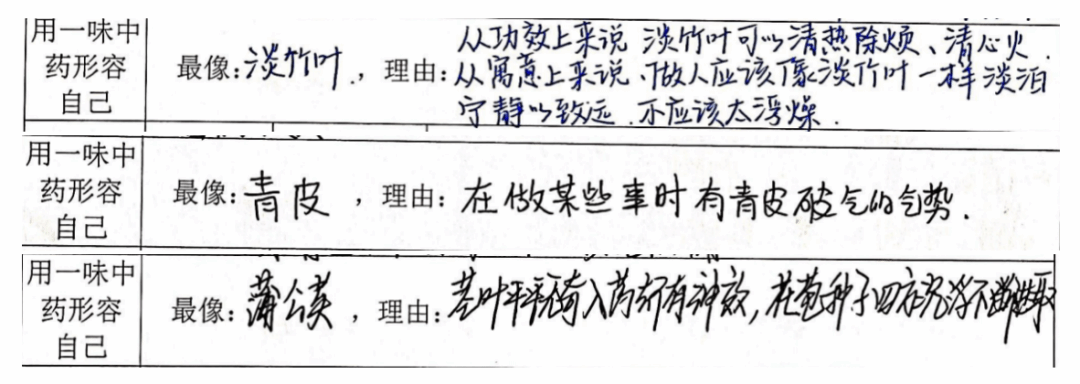 用一味中
药形容
自己
最像:淡竹叶,理由:
从功效上来说 淡竹叶可以清热除烦、清心火.
从寓意上来说、做人应该像淡竹叶一样淡泊
宁静以致远.不应该太浮燥.
用一味中
药形容
自己
最像:青皮,理由:在做某些事时有青皮破气的气势.
用一味中
药形容
自己
最像:蒲公英,理由:茎叶平平无奇入药却有神效,花苞种子四